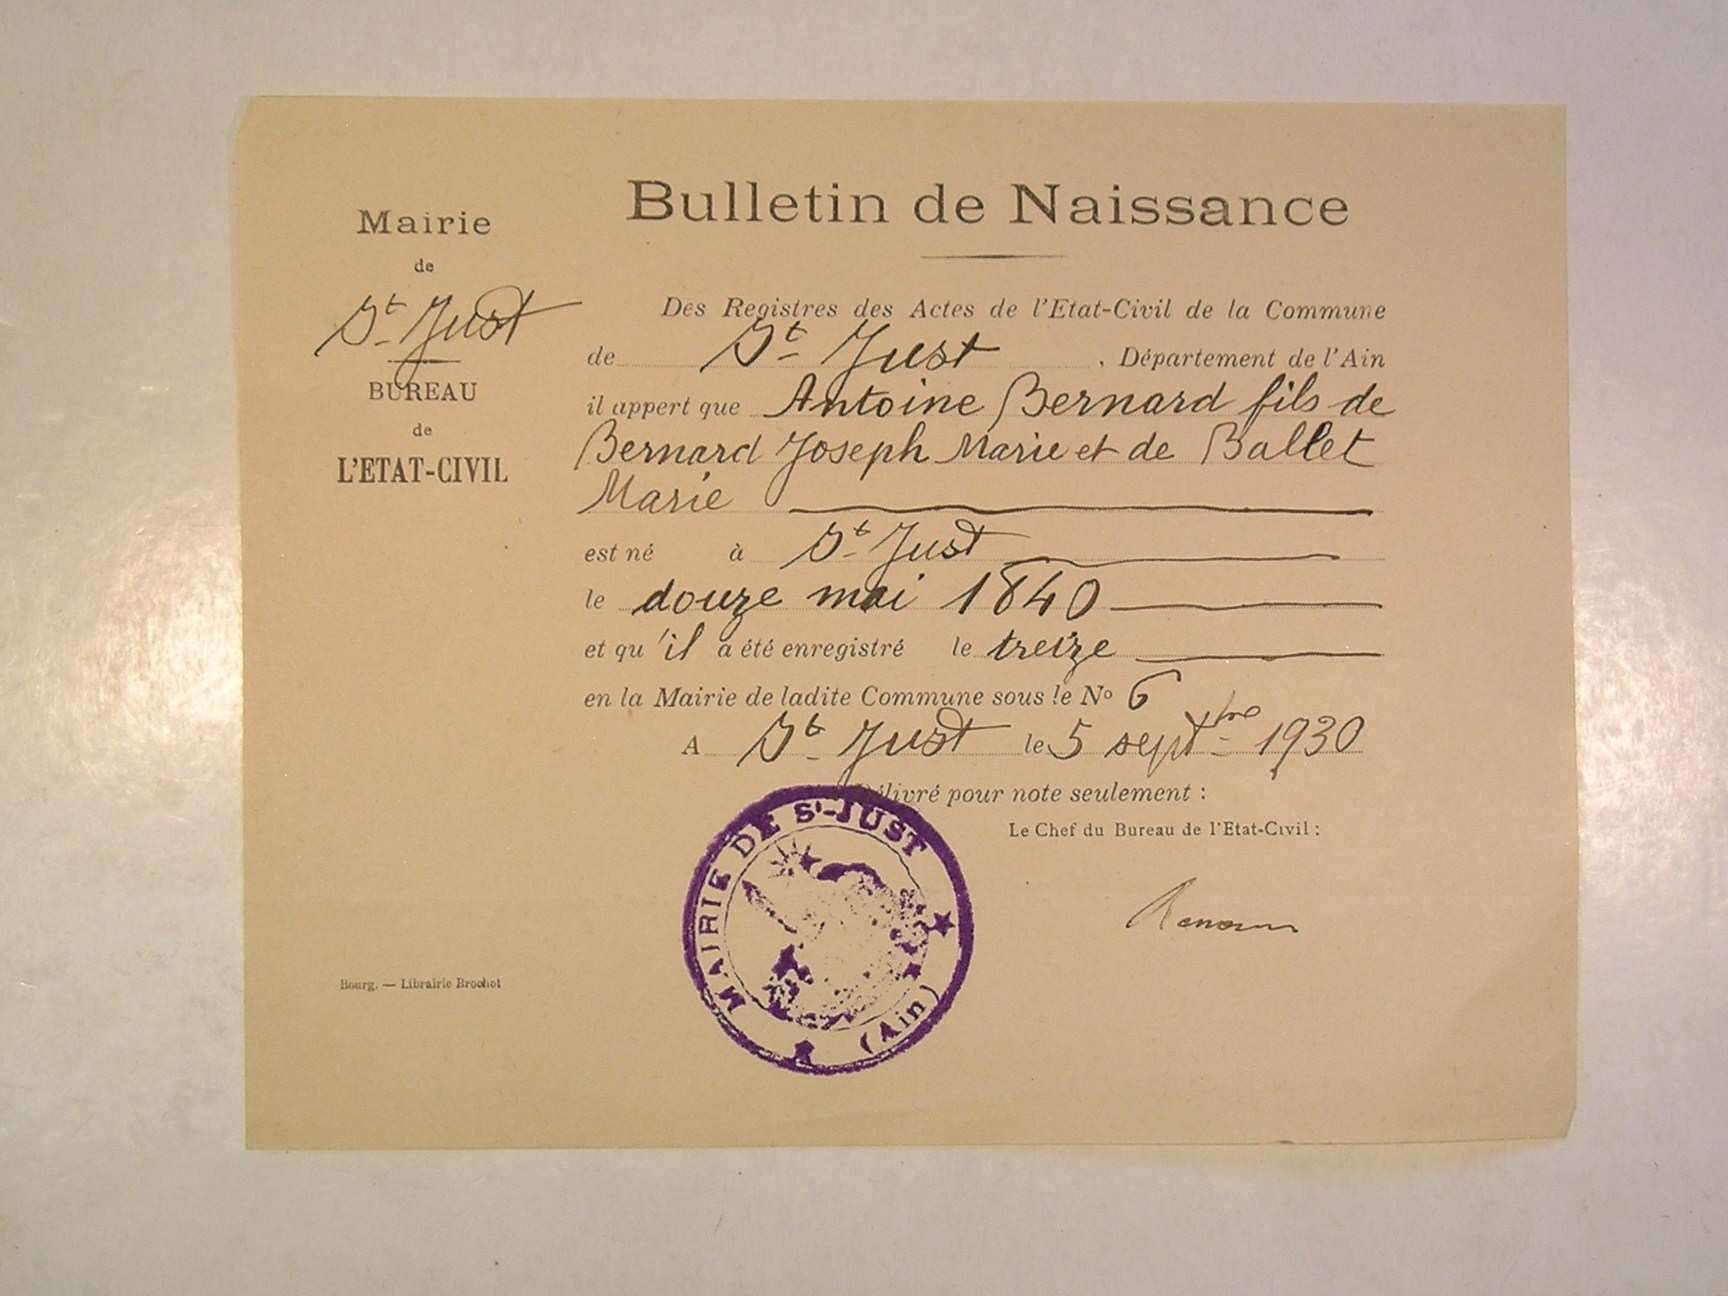 Bulletin de Naissance
Mairie
de
St Just
BUREAU
de
L'ETAT-CIVIL
Des Registres des Actes de l'Etat-Civil de la Commune
de St Just, Département de l'Ain
il appert que Antoine Bernard fils de
Bernard Joseph Marie et de Ballet
Marie
est né à St Just
le douze mai 1840
et qu'il a été enregistré le treize
en la Mairie de ladite Commune sous le No 6
A St Just le 5 septbre 1930
Délivré pour note seulement :
Le Chef du Bureau de l'Etat-Civil :
MAIRIE DE St-JUST
(Ain)
Bourg. — Librairie Brochot